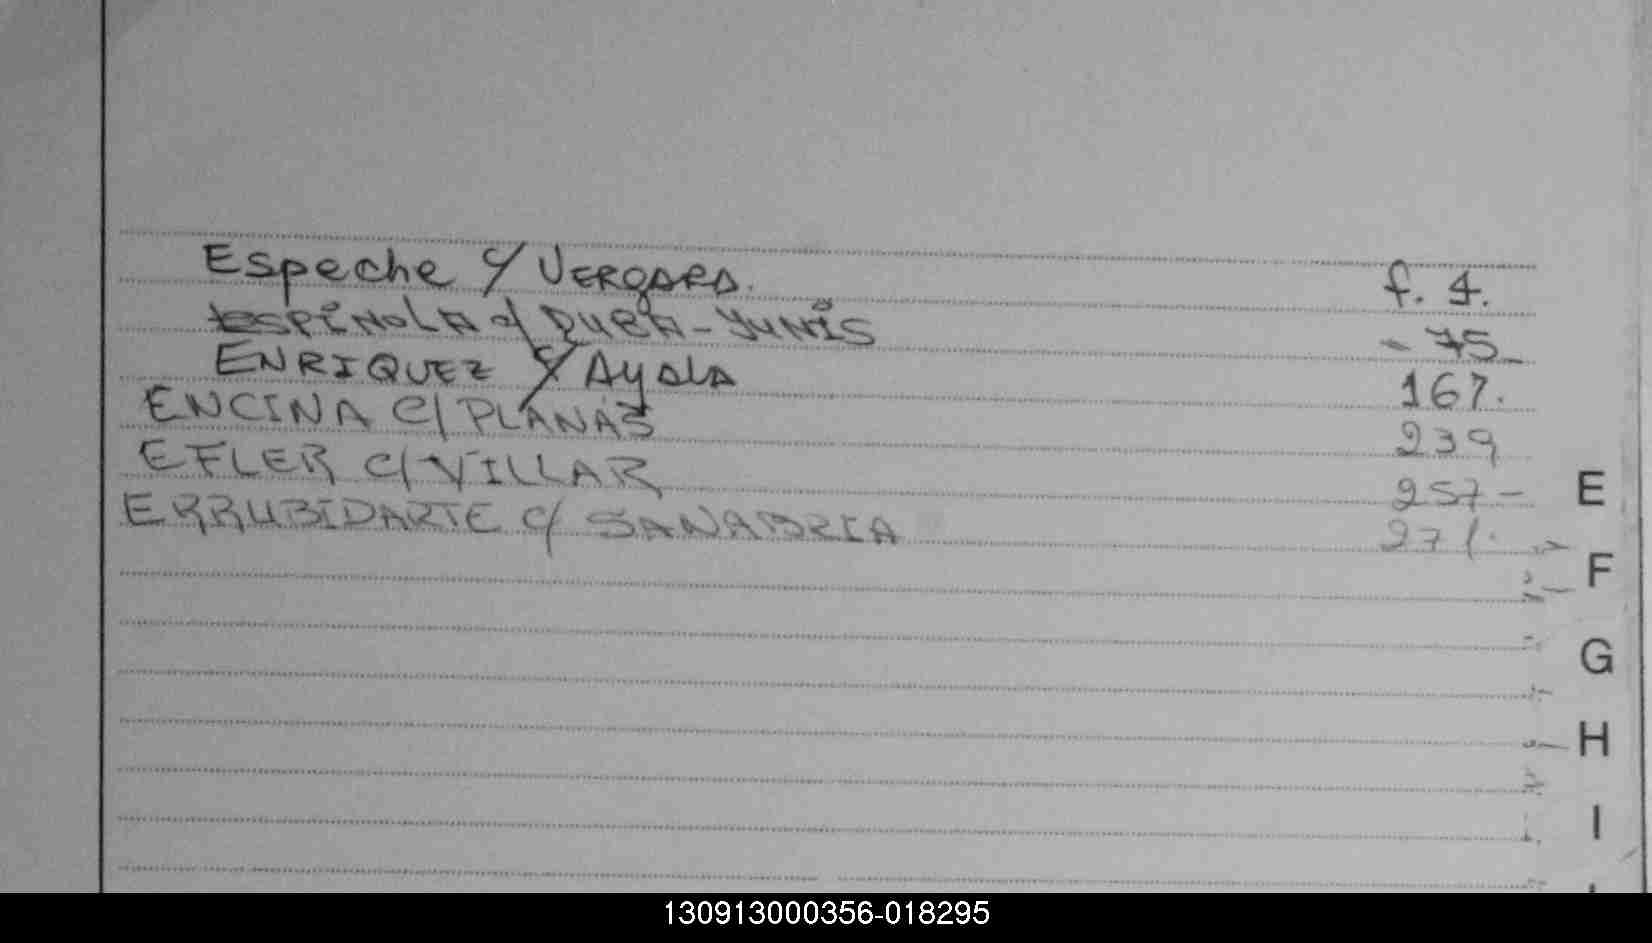 Espeche c/ VERGARA. f. 4.
ESPINOLA c/ DURA-YUNIS - 75_
ENRIQUEZ c/ Ayala 167.
ENCINA C/ PLANAS 239
EFLER C/ VILLAR 257-
ERRUBIDARTE c/ SANABRIA 271.
E
F
G
H
I
130913000356-018295